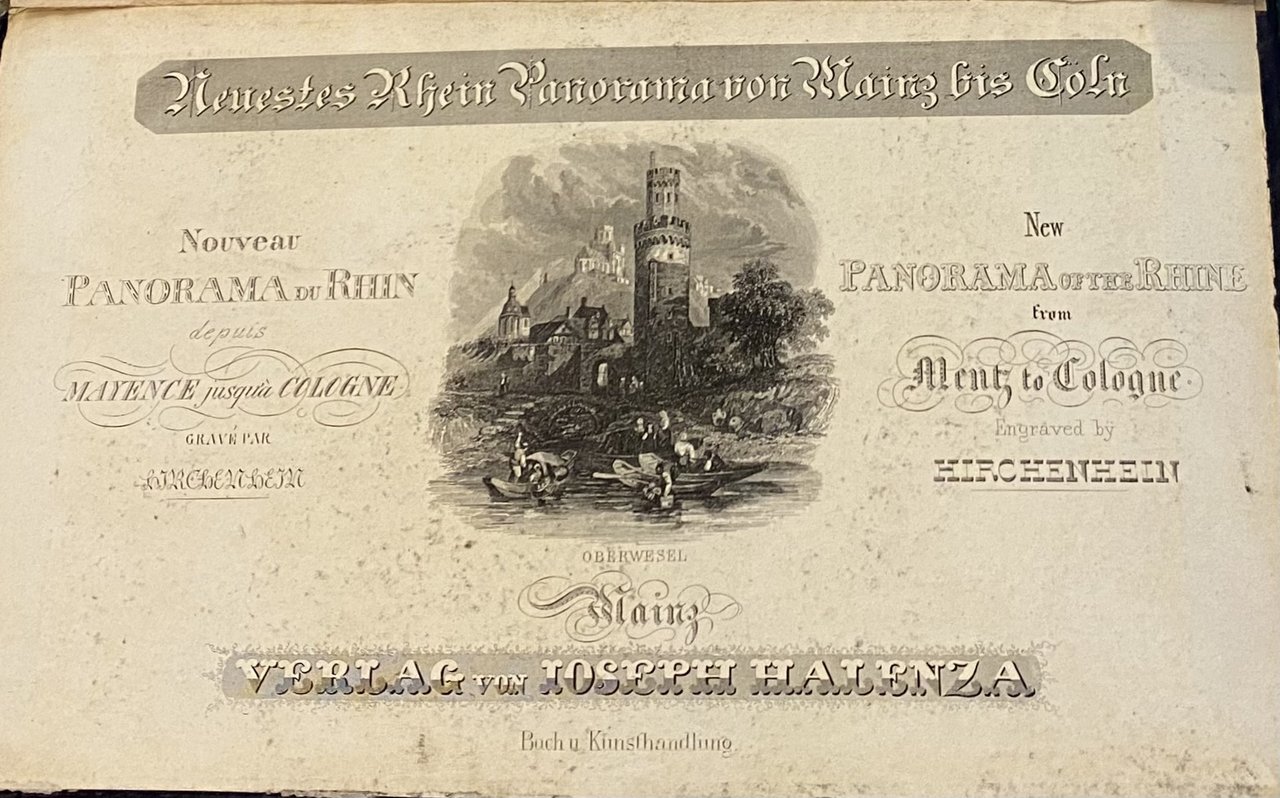 Neuestes Rhein Panorama von Mainz bis Cöln
Nouveau
PANORAMA DU RHIN
depuis
MAYENCE jusqu'à COLOGNE
GRAVÉ PAR
HIRCHENHEIN
New
PANORAMA OF THE RHINE
from
Mentz to Cologne
Engraved by
HIRCHENHEIN
OBERWESEL
Mainz
VERLAG VON IOSEPH HALENZA
Buch u Kunsthandlung.